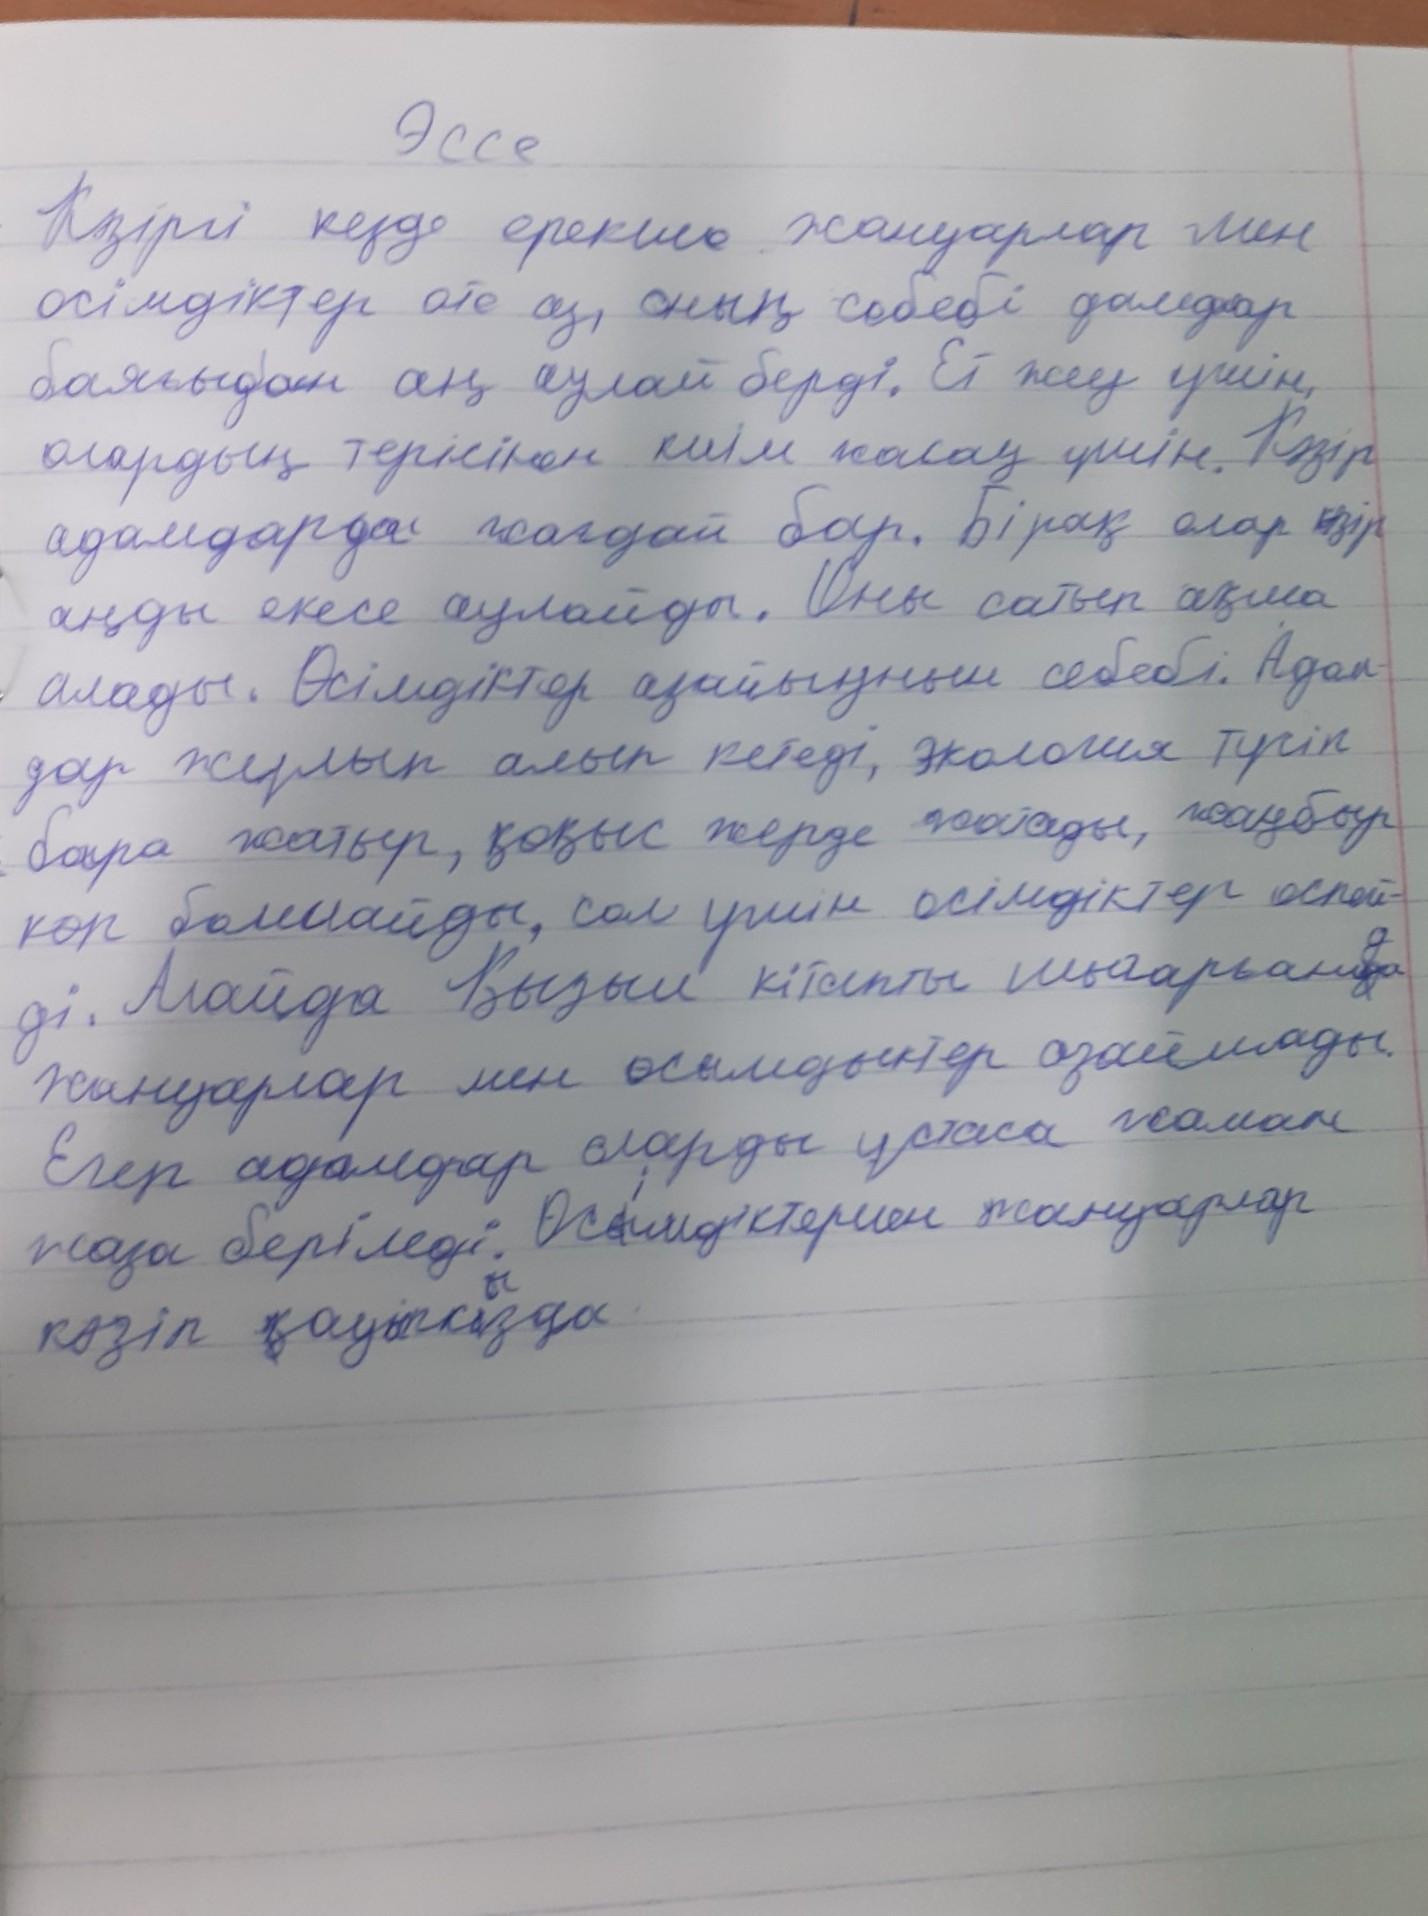 Эссе
Кәзіргі кезде ерекше жануарлар мен
өсімдіктер өте аз, оның себебі дамдар
баяғыдан аң аулай берді. Ет жеу үшін,
олардың терісінен киім жасау үшін. Кәзір
адамдарда жағдай бар. Бірақ олар кәзір
аңды екесе аулайды. Оны сатып ақша
алады. Өсімдіктер азайыуның себебі. Адам-
дар жұлып алып кетеді, экология түгіп
бара жатыр, қоқыс жерде жатады, жаңбыр
көп болмайды, сол үшін өсімдіктер өспей-
ді. Маған Қызыл кітапты шығарғанда
жануарлар мен осымдыктер азаймады.
Егер адамдар оларды ұстаса жаман
жаза беріледі. Өсімдіктермен жануарлар
кәзіп қауыпкызда